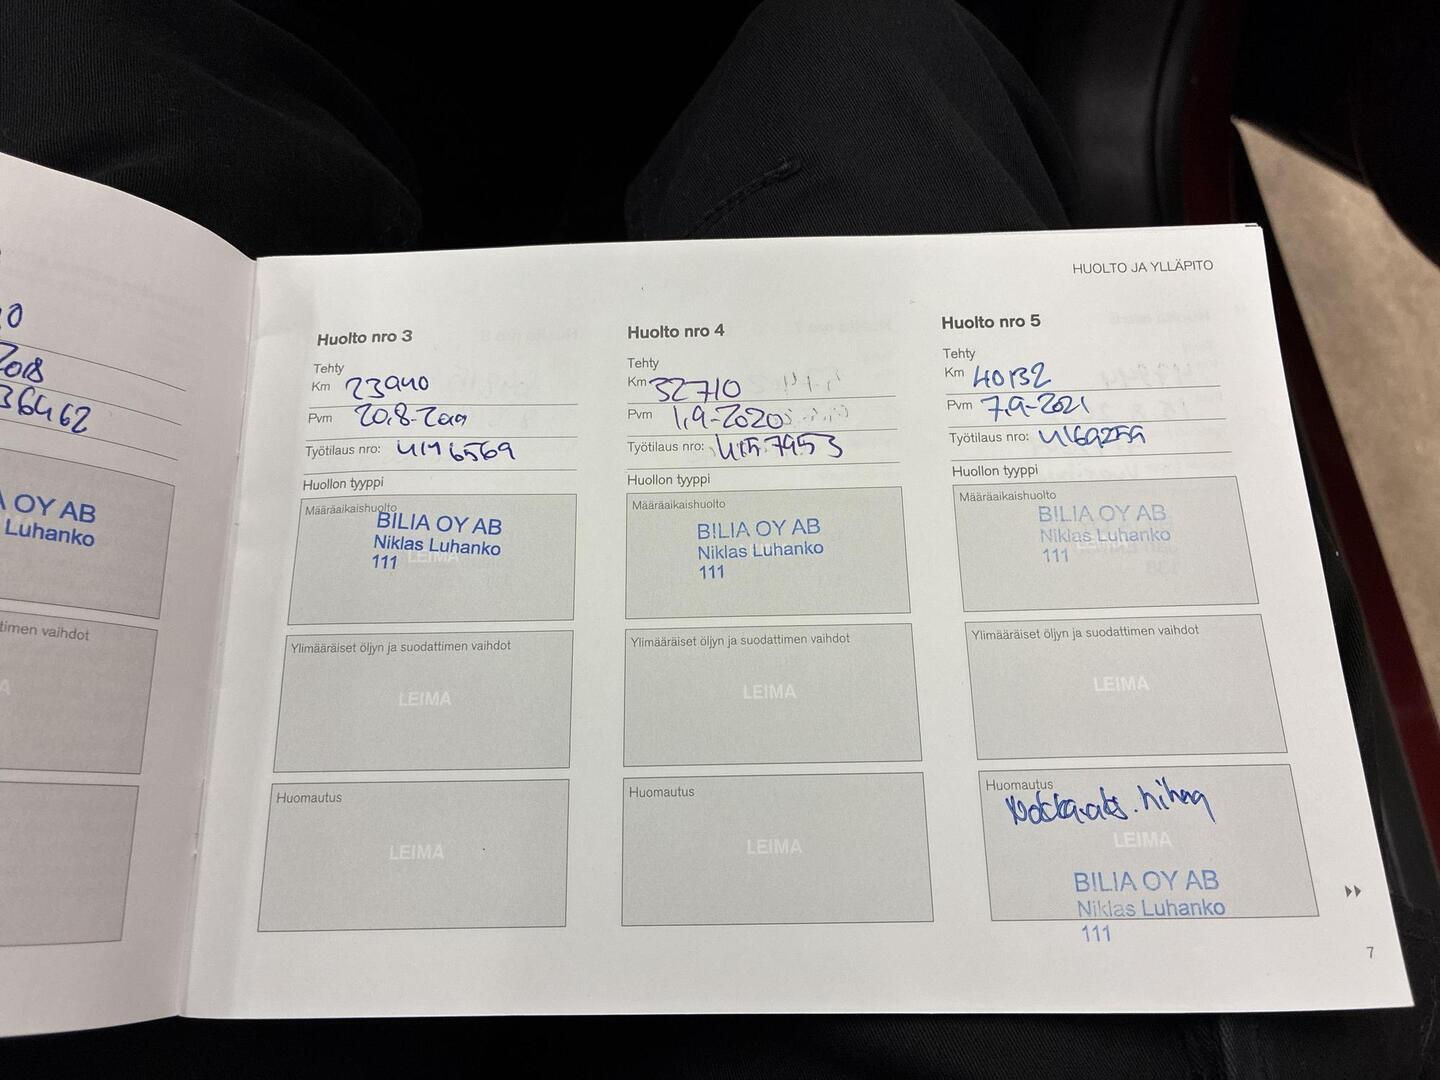 2018
36462
A OY AB
Luhanko
timen vaihdot
HUOLTO JA YLLÄPITO
Huolto nro 3
Tehty
Km 23940
Pvm 20.8-2019
Työtilaus nro: U146569
Huollon tyyppi
Määräaikaishuolto
BILIA OY AB
Niklas Luhanko
LEIMA
111
Ylimääräiset öljyn ja suodattimen vaihdot
LEIMA
Huomautus
LEIMA
Huolto nro 4
Tehty
Km 32710
Pvm 1.9-2020
Työtilaus nro: U157953
Huollon tyyppi
Määräaikaishuolto
BILIA OY AB
Niklas Luhanko
111
Ylimääräiset öljyn ja suodattimen vaihdot
LEIMA
Huomautus
LEIMA
Huolto nro 5
Tehty
Km 40132
Pvm 7.9-2021
Työtilaus nro: U169259
Huollon tyyppi
Määräaikaishuolto
BILIA OY AB
Niklas Luhanko
LEIMA
111
Ylimääräiset öljyn ja suodattimen vaihdot
LEIMA
Huomautus
LEIMA
BILIA OY AB
Niklas Luhanko
111
7